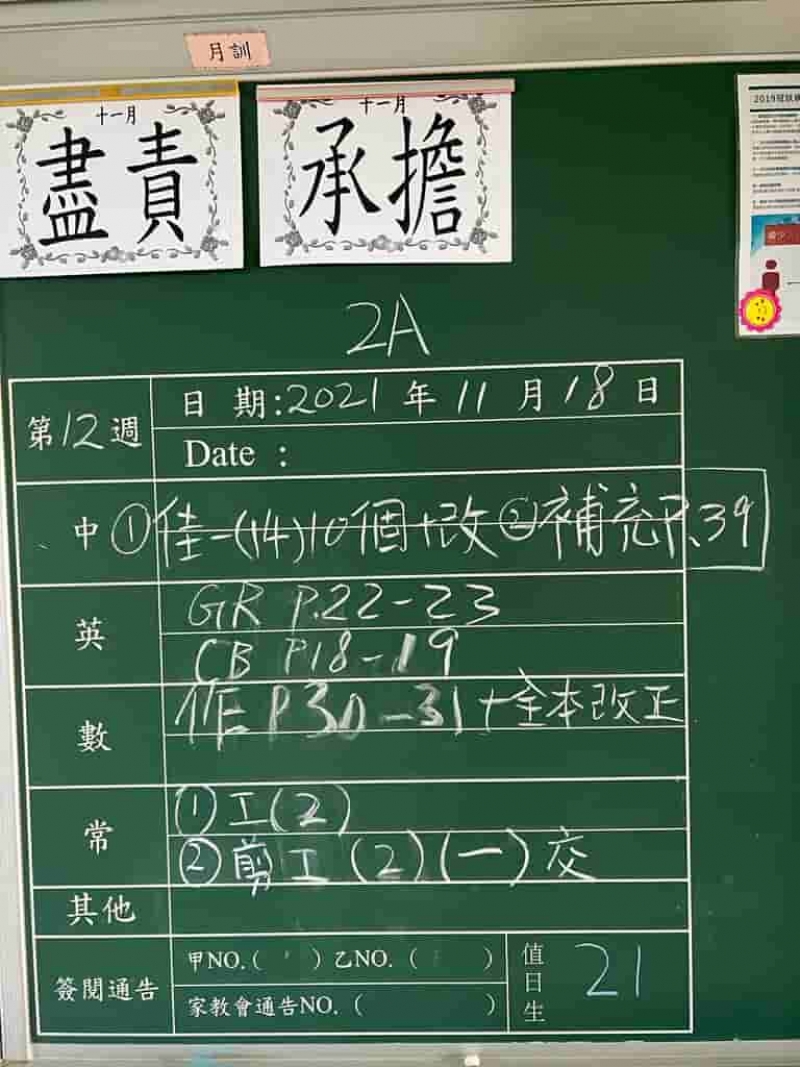 月訓
十一月
盡責
十一月
承擔
2019冠狀病
減少
2A
第12週
日 期:2021 年 11 月 18 日
Date :
中 ①佳-(14)10個+改 ②補充P.39
英
GR P.22-23
CB P18-19
數
作P30-31+全本改正
常
①工(2)
②剪工(2)(一)交
其他
簽閱通告
甲NO.( ) 乙NO. ( )
家教會通告NO. ( )
值日生
21